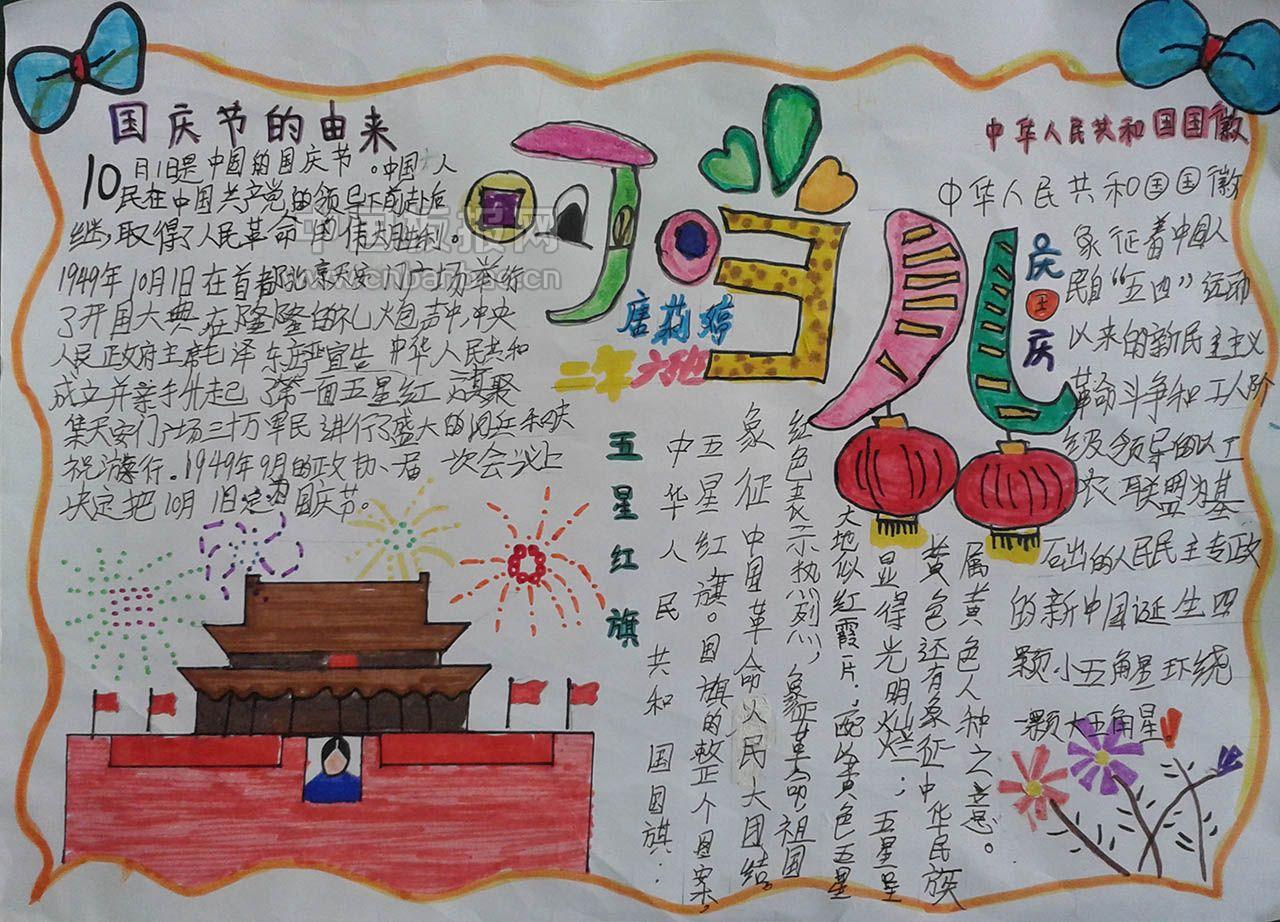 国庆节的由来
10月1日是中国的国庆节。中国人
民在中国共产党的领导下前赴后
继,取得了人民革命的伟大胜利。
1949年10月1日在首都北京天安门广场举行
了开国大典,在隆隆的礼火炮声中,中央
人民政府主席毛泽东庄严宣告 中华人民共和
成立并亲手升起了第一面五星红旗聚
集天安门广场三十万军民进行了盛大的阅兵和庆
祝游行.1949年9月的政协一届一次会议上
决定把10月1日定为国庆节。
叮当儿
唐莉婷
二年六班
庆国庆
五星红旗
中华人民共和国国旗:
五星红旗。国旗的整个图案,
象征中国革命人民大团结。
红色表示热烈心,象征革命,祖国
大地似红霞一片;配备黄色五星
显得光明灿烂;五星呈
黄色还有象征中华民族
属黄色人种之意。
中华人民共和国国徽
中华人民共和国国徽
象征着中国人
民自“五四”运动
以来的新民主主义
革命斗争和工人阶
级领导的以工
农联盟为基
石出的人民民主专政
的新中国诞生四
颗小五角星环绕
一颗大五角星!
中国板报网
www.cnbanbao.cn